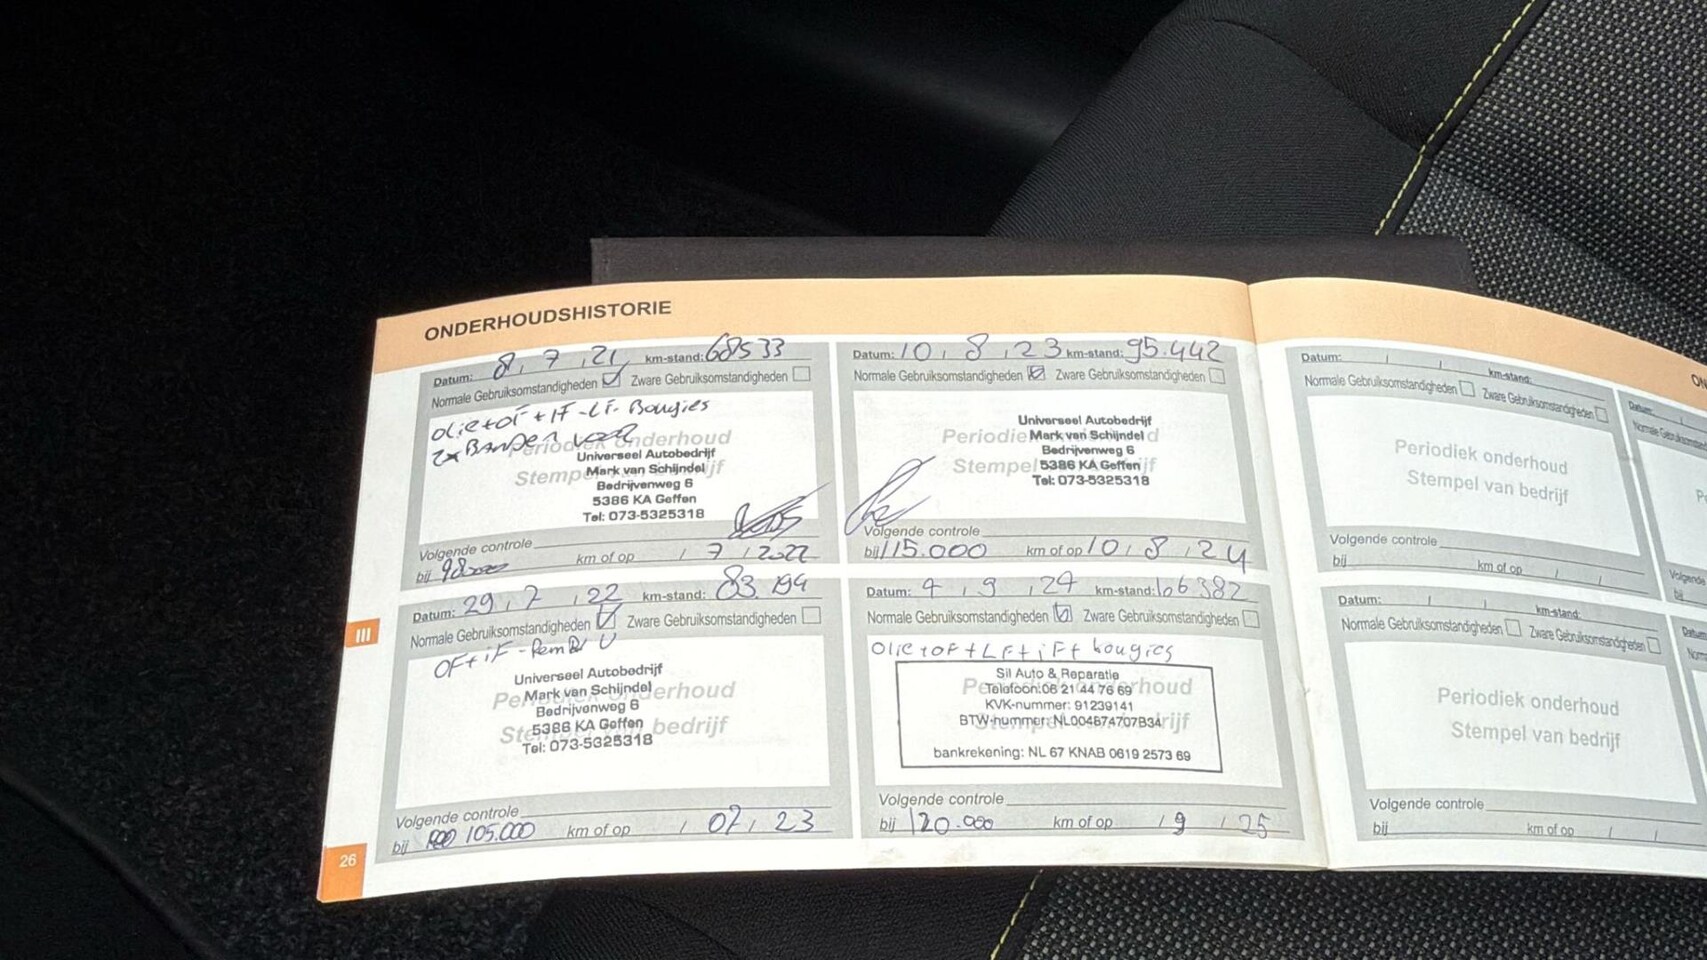 ONDERHOUDSHISTORIE
Datum: 8, 7, 21 km-stand: 68533
Normale Gebruiksomstandigheden Zware Gebruiksomstandigheden
olie+OF+IF-LF-Bougies
2x Banden voor
Periodiek onderhoud
Stempel van bedrijf
Universeel Autobedrijf
Mark van Schijndel
Bedrijvenweg 6
5386 KA Geffen
Tel: 073-5325318
Volgende controle
bij 98000 km of op / 7 / 2022
Datum: 29, 7, 22 km-stand: 83.194
Normale Gebruiksomstandigheden Zware Gebruiksomstandigheden
OF+iF-
Periodiek onderhoud
Stempel van bedrijf
Universeel Autobedrijf
Mark van Schijndel
Bedrijvenweg 6
5386 KA Geffen
Tel: 073-5325318
Volgende controle
bij 105.000 km of op / 07, 23
III
26
Datum: 10, 8, 23 km-stand: 95.442
Normale Gebruiksomstandigheden Zware Gebruiksomstandigheden
Periodiek onderhoud
Stempel van bedrijf
Universeel Autobedrijf
Mark van Schijndel
Bedrijvenweg 6
5386 KA Geffen
Tel: 073-5325318
Volgende controle
bij 115.000 km of op 10, 8, 24
Datum: 4, 9, 24 km-stand: 106382
Normale Gebruiksomstandigheden Zware Gebruiksomstandigheden
Olie+OF+LF+iF+bougies
Periodiek onderhoud
Stempel van bedrijf
Sil Auto & Reparatie
Telefoon:06 21 44 76 69
KVK-nummer: 91239141
BTW-nummer: NL004674707B34
bankrekening: NL 67 KNAB 0619 2573 69
Volgende controle
bij 120.000 km of op / 9 / 25
Datum: / / km-stand:
Normale Gebruiksomstandigheden Zware Gebruiksomstandigheden
Periodiek onderhoud
Stempel van bedrijf
Volgende controle
bij km of op / /
Datum: / / km-stand:
Normale Gebruiksomstandigheden Zware Gebruiksomstandigheden
Periodiek onderhoud
Stempel van bedrijf
Volgende controle
bij km of op / /